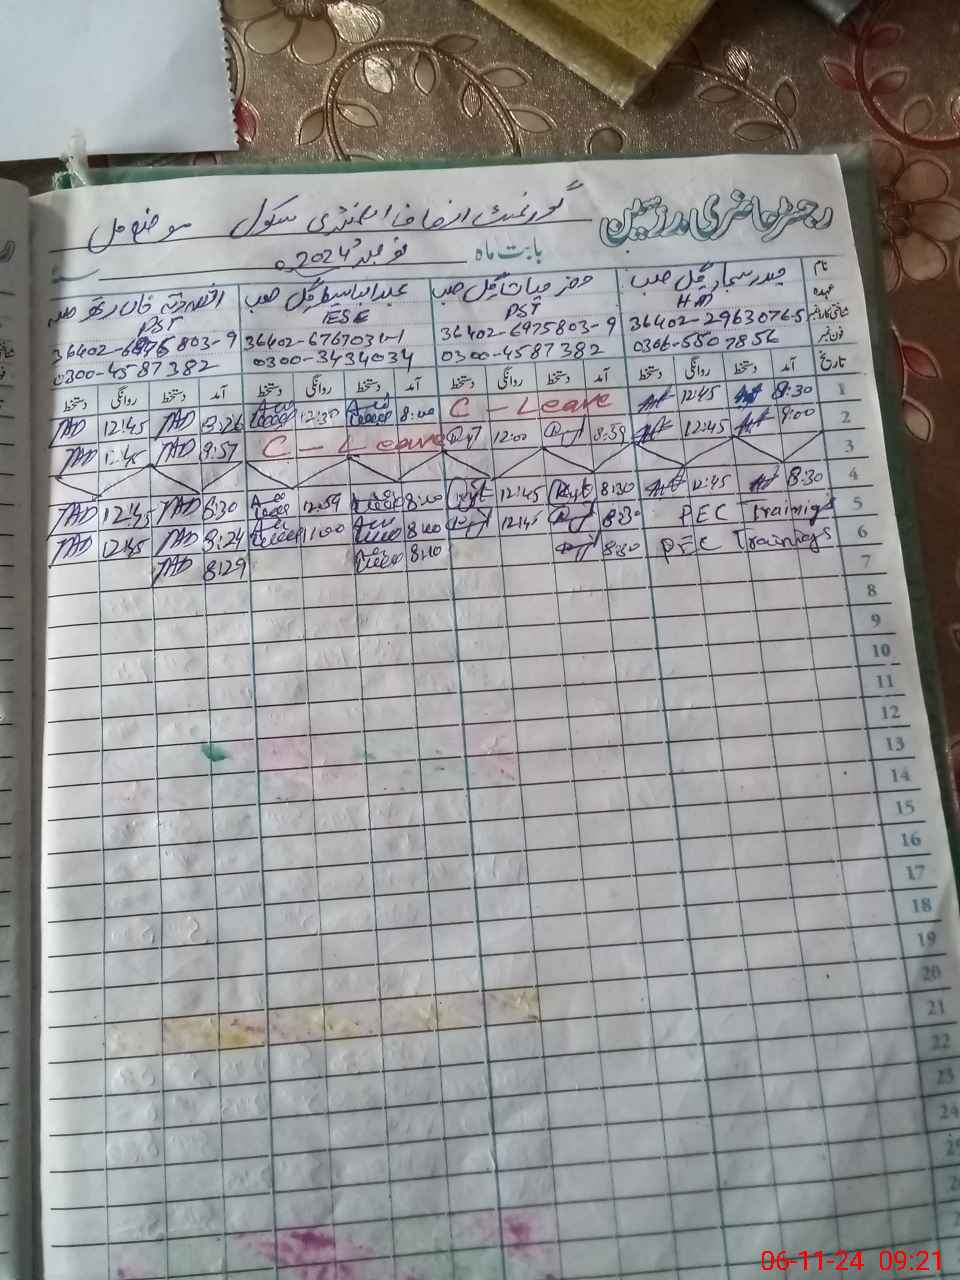 رجسٹر حاضری مدرسین گورنمنٹ انصاف ایلمنٹری سکول موضع مل
بابت ماہ نومبر 2024ء
نام حیدر گل صاحب خضر حیات گل صاحب عبدالباسط گل صاحب خان صاحب
عہدہ HM PST ESE PST
شناختی کارڈ نمبر 36402-2963076-5 36402-6975803-9 36402-6767031-1 36402-6975803-9
فون نمبر 0306-5507856 0300-4587382 0300-3434034 0300-4587382
تاریخ آمد دستخط روانگی دستخط آمد دستخط روانگی دستخط آمد دستخط روانگی دستخط آمد دستخط روانگی دستخط
1 8:30 12:45 C - Leave 8:00 12:30 8:26 TAD 12:45 TAD
2 9:00 12:45 8:59 12:00 C - Leave 8:57 TAD 12:45 TAD
3
4 8:30 12:45 8:30 12:45 8:00 12:59 8:30 TAD 12:45 TAD
5 PEC Trainigs 8:30 12:45 8:00 11:00 8:24 TAD 12:45 TAD
6 PEC Trainings 8:30 8:10 8:29 TAD
7
8
9
10
11
12
13
14
15
16
17
18
19
20
21
22
23
24
06-11-24 09:21